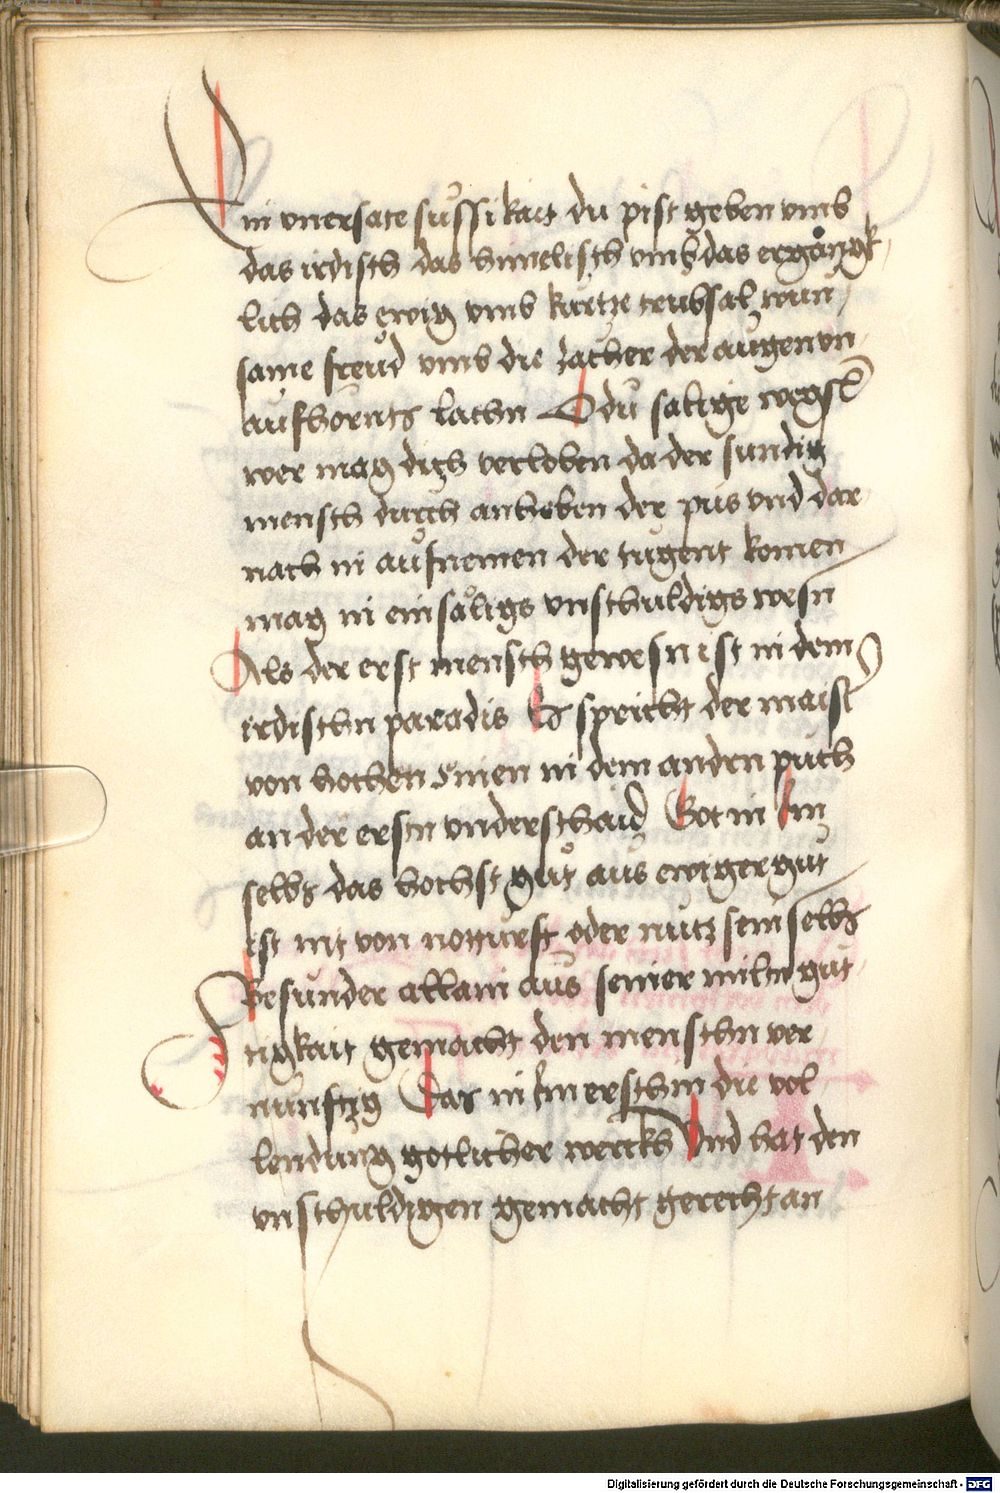 Ein vnersate sussikait du pist geben vmb
das irdisch das himelisch vmb das ergångk¬
lich das ewig vmb kurtze trubsal wun¬
same freud vmb die zächer der augen vn¬
aufhörents lachn O du salige wegsl
wer mag dich verloben da der sundig
mensch durch anheben der pus vnd dar¬
nach in aufnemen der tugent komen
mag in ein såligs vnschuldigs wesn
Als der erst mensch gewesn ist in dem
irdischn paradis Es spricht der maist
von hochen sinen in dem andern puch
an der erstn vnderschaid Got in Im
selbs das hochst gůt aus ewiger gut
ist nit von notturft oder nutz sein selbs
Besunder allain aus seiner miltn gut¬
tigkait gemacht den menschn ver
nunftig Das in Im erschin die vol
lendung gotlicher werckh Vnd hat den
vnschuldigen gemacht gerecht an
Digitalisierung gefördert durch die Deutsche Forschungsgemeinschaft - DFG